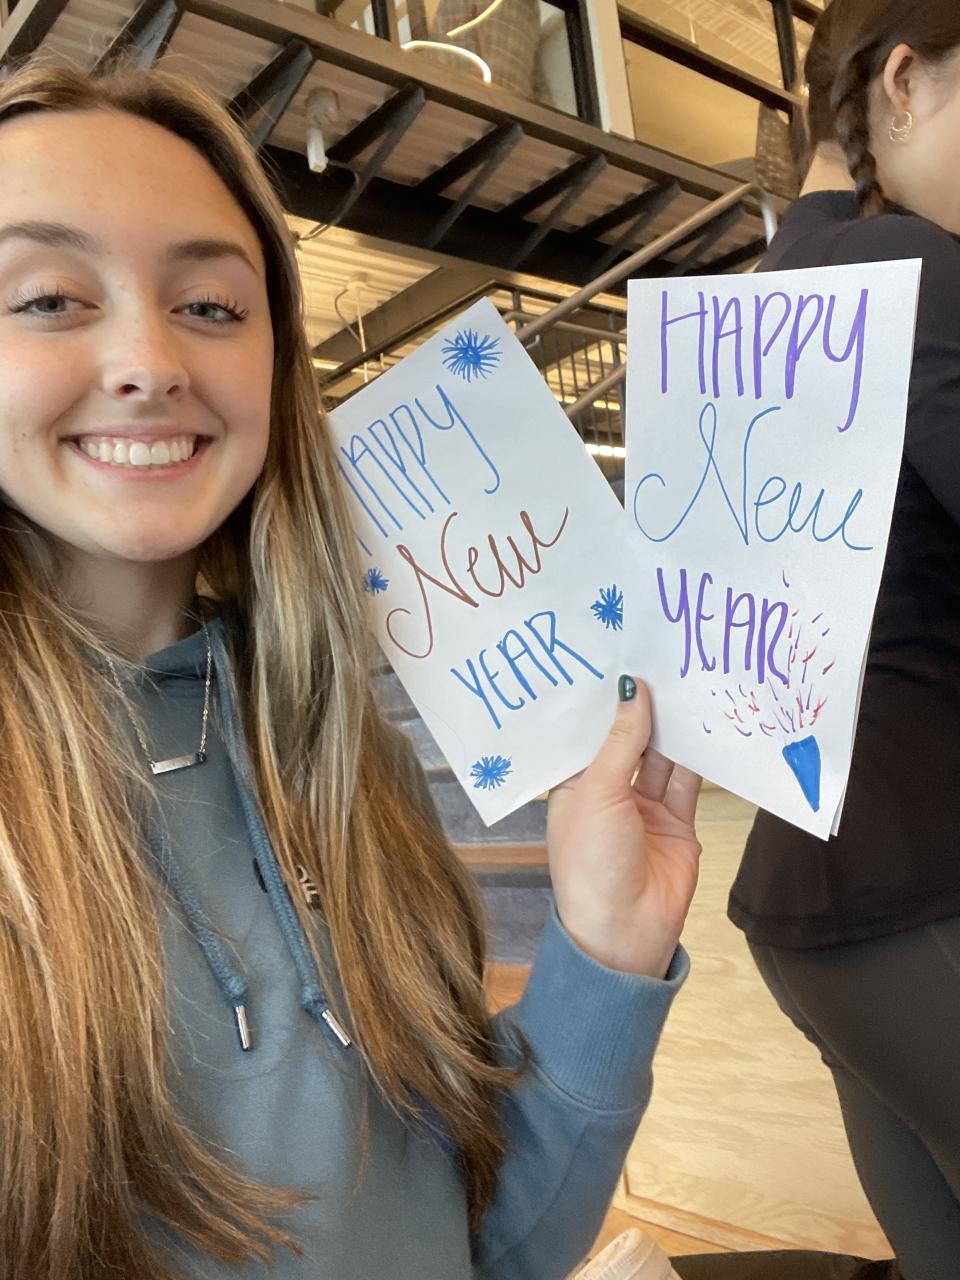 HAPPY
New
YEAR
HAPPY
New
YEAR